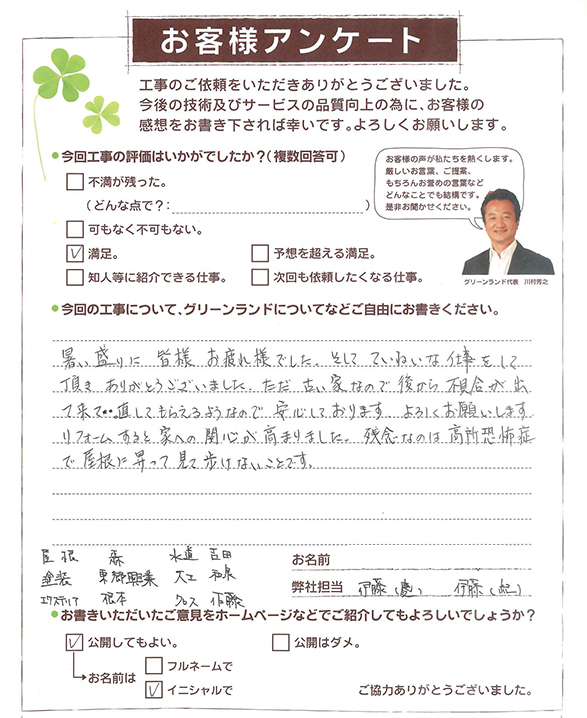 お客様アンケート
工事のご依頼をいただきありがとうございました。
今後の技術及びサービスの品質向上の為に、お客様の
感想をお書き下されば幸いです。よろしくお願いします。
●今回工事の評価はいかがでしたか?(複数回答可)
□不満が残った。
(どんな点で?: )
□可もなく不可もない。
☑満足。 □予想を超える満足。
□知人等に紹介できる仕事。 □次回も依頼したくなる仕事。
お客様の声が私たちを熱くします。
厳しいお言葉、ご提案、
もちろんお誉めの言葉など
どんなことでも結構です。
是非お聞かせください。
グリーンランド代表 川村秀之
●今回の工事について、グリーンランドについてなどご自由にお書きください。
暑い盛りに 皆様 お疲れ様でした。そして ていねいな 仕事をして
頂き ありがとうございました。ただ 古い家なので 後から 不具合が出
て来て・・直してもらえるようなので 安心しております よろしくお願いします
リフォームすると 家への 関心が 高まりました。残念なのは 高所恐怖症
で 屋根に 昇って 見て 歩けないことです。
屋根 森 水道 吉田
塗装 東郷興業 大工 和泉
エクステリア 根本 クロス 佐藤
お名前
弊社担当 伊藤(慶) 伊藤(紀)
●お書きいただいたご意見をホームページなどでご紹介してもよろしいでしょうか?
☑公開してもよい。 □公開はダメ。
→お名前は □フルネームで
☑イニシャルで
ご協力ありがとうございました。